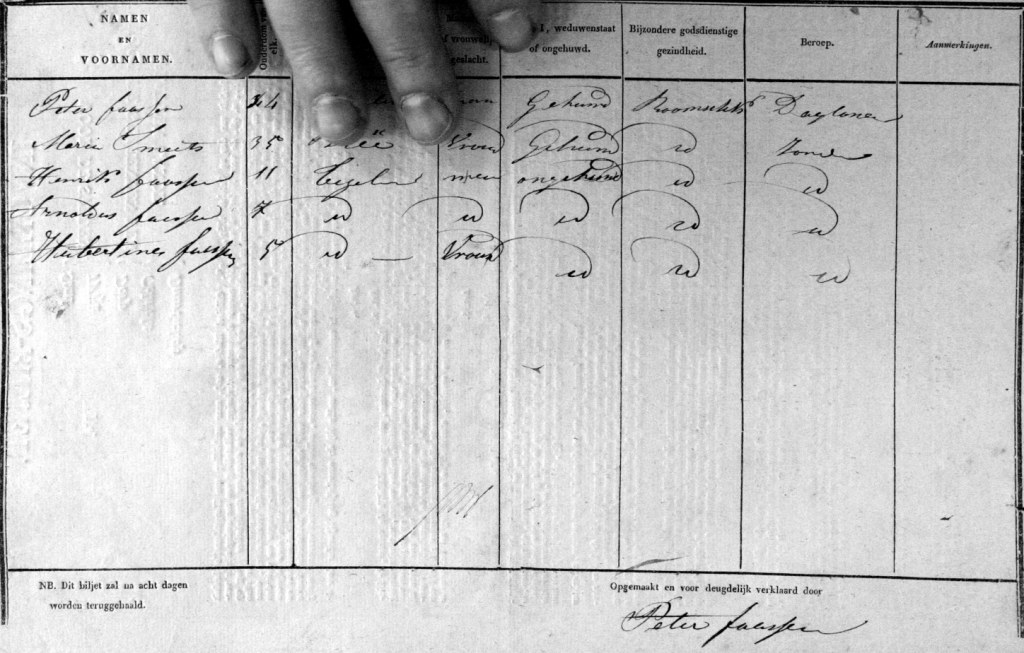 NAMEN EN VOORNAMEN. elk. geslacht. weduwenstaat of ongehuwd. Bijzondere godsdienstige gezindheid. Beroep. Aanmerkingen.
Peter faassen 44 Gehuwd Dagloner
Maria Smeets 35 Vrouw Gehuwd id
Henrik faassen 11 Tegelen man ongehuwd id id
Arnoldus faassen 7 id id id id id
Hubertines faassen 5 id Vrouw id id id
NB. Dit biljet zal na acht dagen
worden teruggehaald.
Opgemaakt en voor deugdelijk verklaard door
Peter faassen